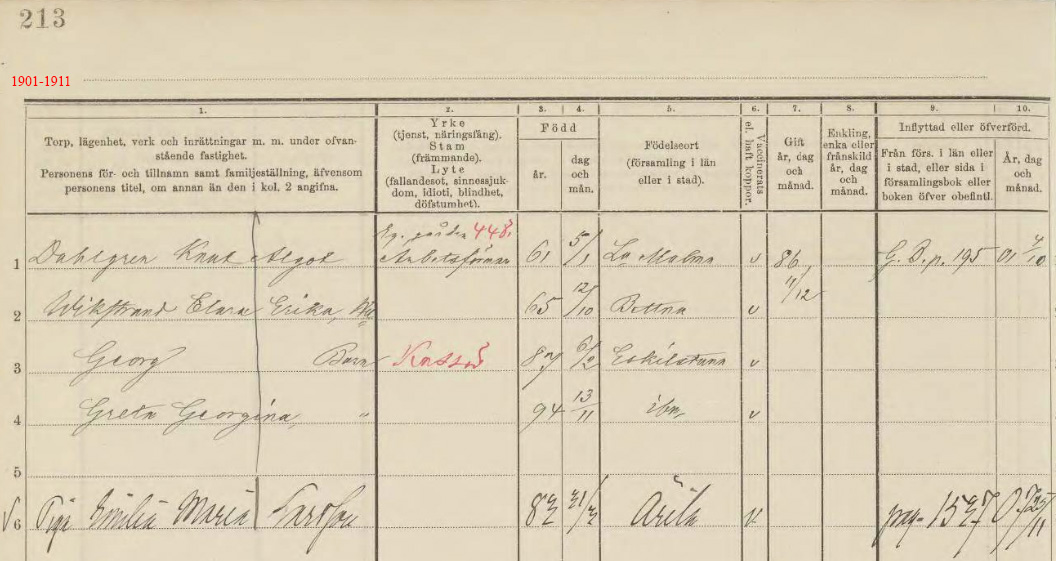 213
1901-1911
1. 2. 3. 4. 5. 6. 7. 8. 9. 10.
Torp, lägenhet, verk och inrättningar m. m. under ofvan-
stående fastighet.
Personens för- och tillnamn samt familjeställning, äfvensom
personens titel, om annan än den i kol. 2 angifna.
Yrke
(tjenst, näringsfång).
Stam
(främmande).
Lyte
(fallandesot, sinnessjuk-
dom, idioti, blindhet,
döfstumhet).
Född
år.
dag
och
mån.
Födelseort
(församling i län
eller i stad).
Vaccinerats
el. haft koppor.
Gift
år, dag
och
månad.
Enkling,
enka eller
frånskild
år, dag
och
månad.
Inflyttad eller öfverförd.
Från förs. i län eller
i stad, eller sida i
församlingsbok eller
boken öfver obefintl.
År, dag
och
månad.
Eg. gården 448.
1 Dahlgren Knut Algot Arbetsförman 61 5/1 La Malma v 86 G. B. p. 195 01 4/10
11/12
2 Wikstrand Clara Erika, 65 12/10 Bettna v
3 Georg Barn 87 6/2 Eskilstuna v
4 Greta Georgina, " 94 13/11 ibm, v
5
6 Piga Emilia Maria Larsson 82 Ärila v pag. 25/11